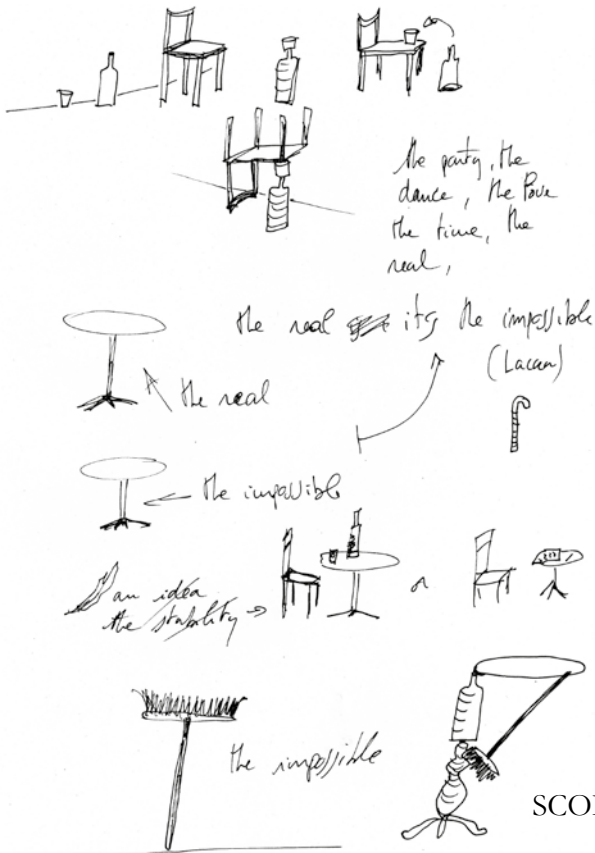 the party, the
dance, the love
the time, the
real,
the real its the impossible
(Lacan)
the real
the impossible
an idea
the stability
the impossible